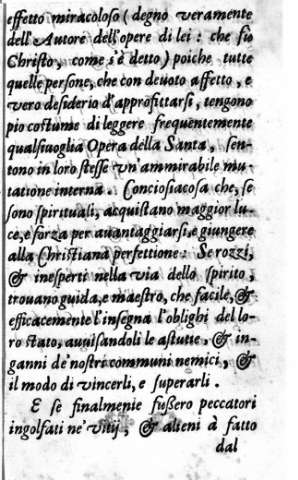 effetto miracoloso (degno veramente
dell'Autore dell'opere di lei: che fù
Christo, come s'è detto) poiche tutte
quelle persone, che con deuoto affetto, e
vero desiderio d'approfittarsi, tengono
pio costume di leggere frequentemente
qualsiuoglia Opera della Santa, sen-
tono in loro stesse vn'ammirabile mu-
tatione interna. Conciosiacosa che, se
sono spirituali, acquistano maggior lu-
ce, e forza per auantaggiarsi, e giungere
alla Christiana perfettione: Se rozzi,
& inesperti nella via dello spirito,
trouano guida, e maestro, che facile, &
efficacemente l'insegna l'oblighi del lo-
ro stato, auuisandoli le astutie, & in-
ganni de' nostri communi nemici, &
il modo di vincerli, e superarli.
E se finalmenie fußero peccatori
ingolfati ne' vitij, & alieni à fatto
dal